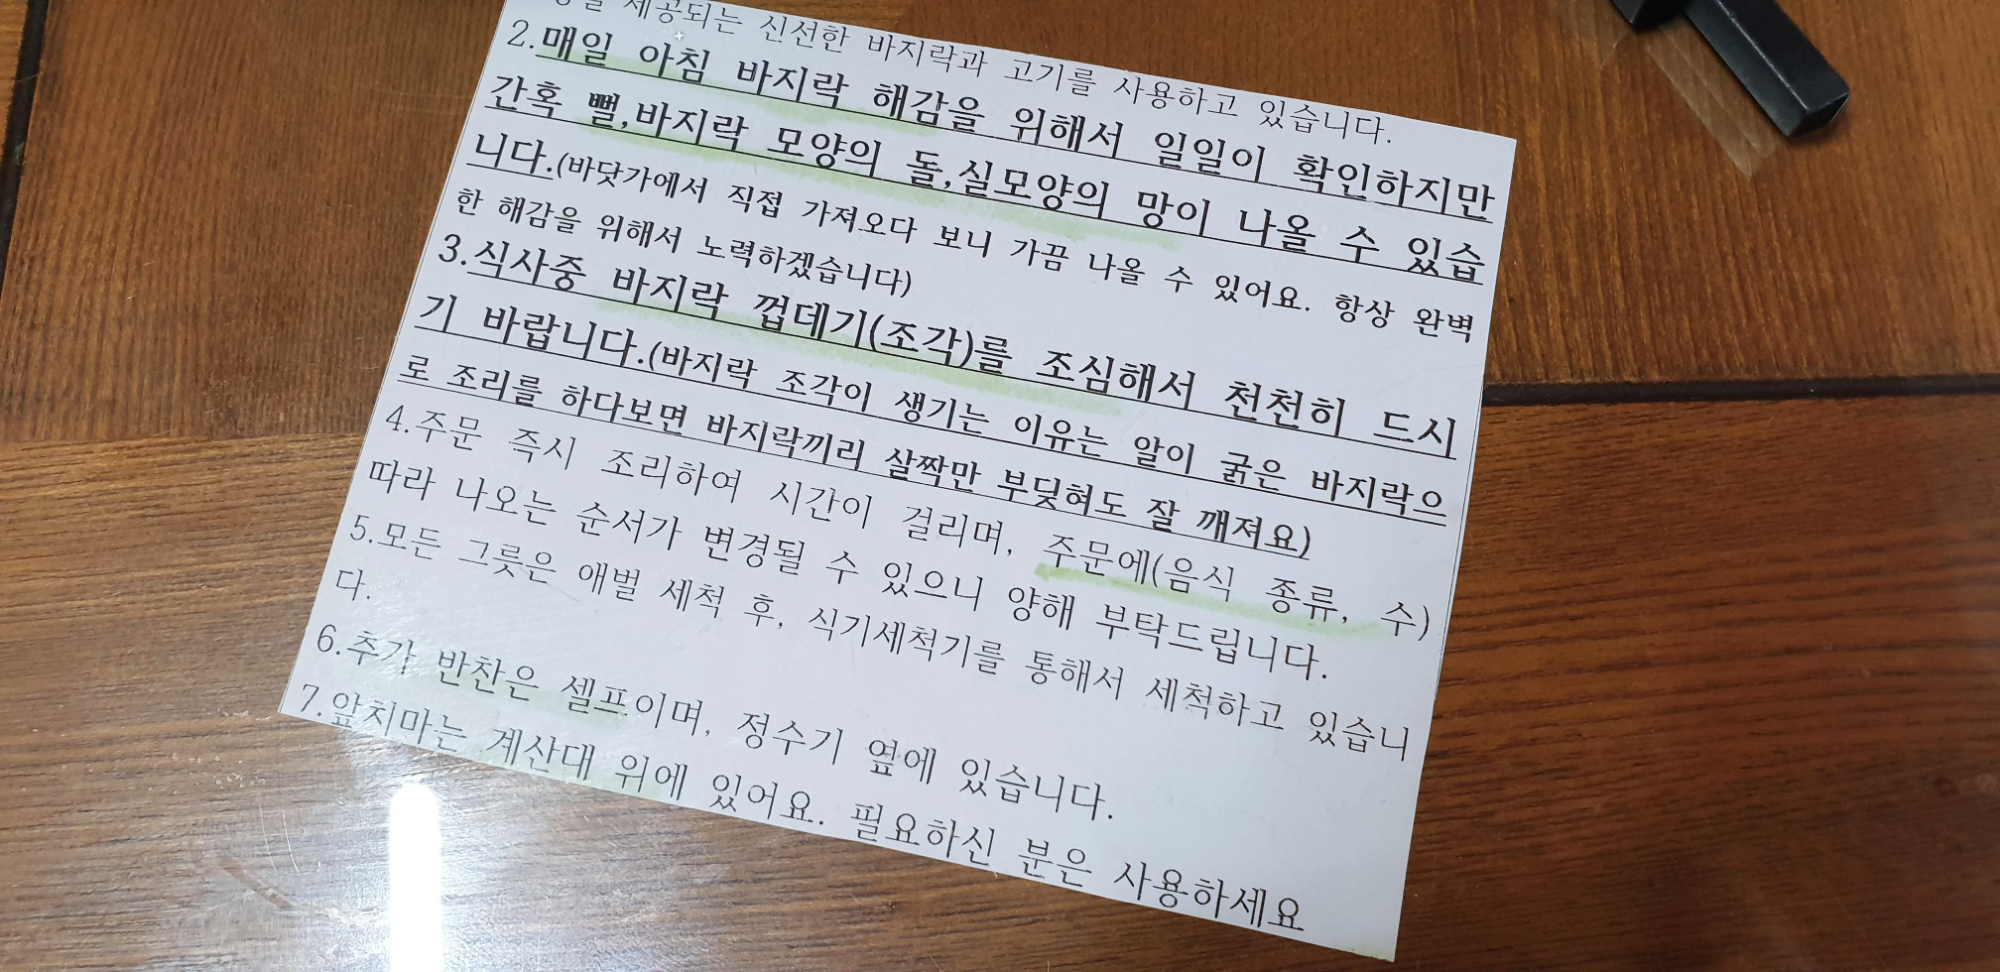 제공되는 신선한 바지락과 고기를 사용하고 있습니다.
2.매일 아침 바지락 해감을 위해서 일일이 확인하지만
간혹 뻘,바지락 모양의 돌,실모양의 망이 나올 수 있습
니다.(바닷가에서 직접 가져오다 보니 가끔 나올 수 있어요. 항상 완벽
한 해감을 위해서 노력하겠습니다)
3.식사중 바지락 껍데기(조각)를 조심해서 천천히 드시
기 바랍니다.(바지락 조각이 생기는 이유는 알이 굵은 바지락으
로 조리를 하다보면 바지락끼리 살짝만 부딪혀도 잘 깨져요)
4.주문 즉시 조리하여 시간이 걸리며, 주문에(음식 종류, 수)
따라 나오는 순서가 변경될 수 있으니 양해 부탁드립니다.
5.모든 그릇은 애벌 세척 후, 식기세척기를 통해서 세척하고 있습니
다.
6.추가 반찬은 셀프이며, 정수기 옆에 있습니다.
7.앞치마는 계산대 위에 있어요. 필요하신 분은 사용하세요